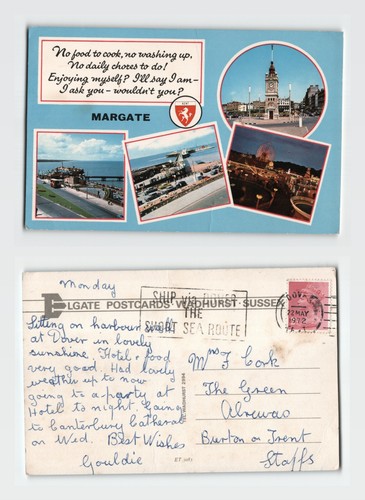 No food to cook, no washing up,
No daily chores to do!
Enjoying myself? I'll say I am—
I ask you—wouldn't you?
MARGATE
Monday
ELGATE POSTCARDS WADHURST·SUSSEX
Sitting on harbour wall
at Dover in lovely
sunshine. Hotel & food
very good. Had lovely
weather up to now
going to a party at
Hotel to night. Going
to Canterbury Cathedral
on Wed. Best Wishes
Gouldie
SHIP
THE
SHORT SEA ROUTE
DOVER
22 MAY
1972
Mrs F Cork
The Green
Alrewas
Burton on Trent
Staffs
TEL. WADHURST 2394